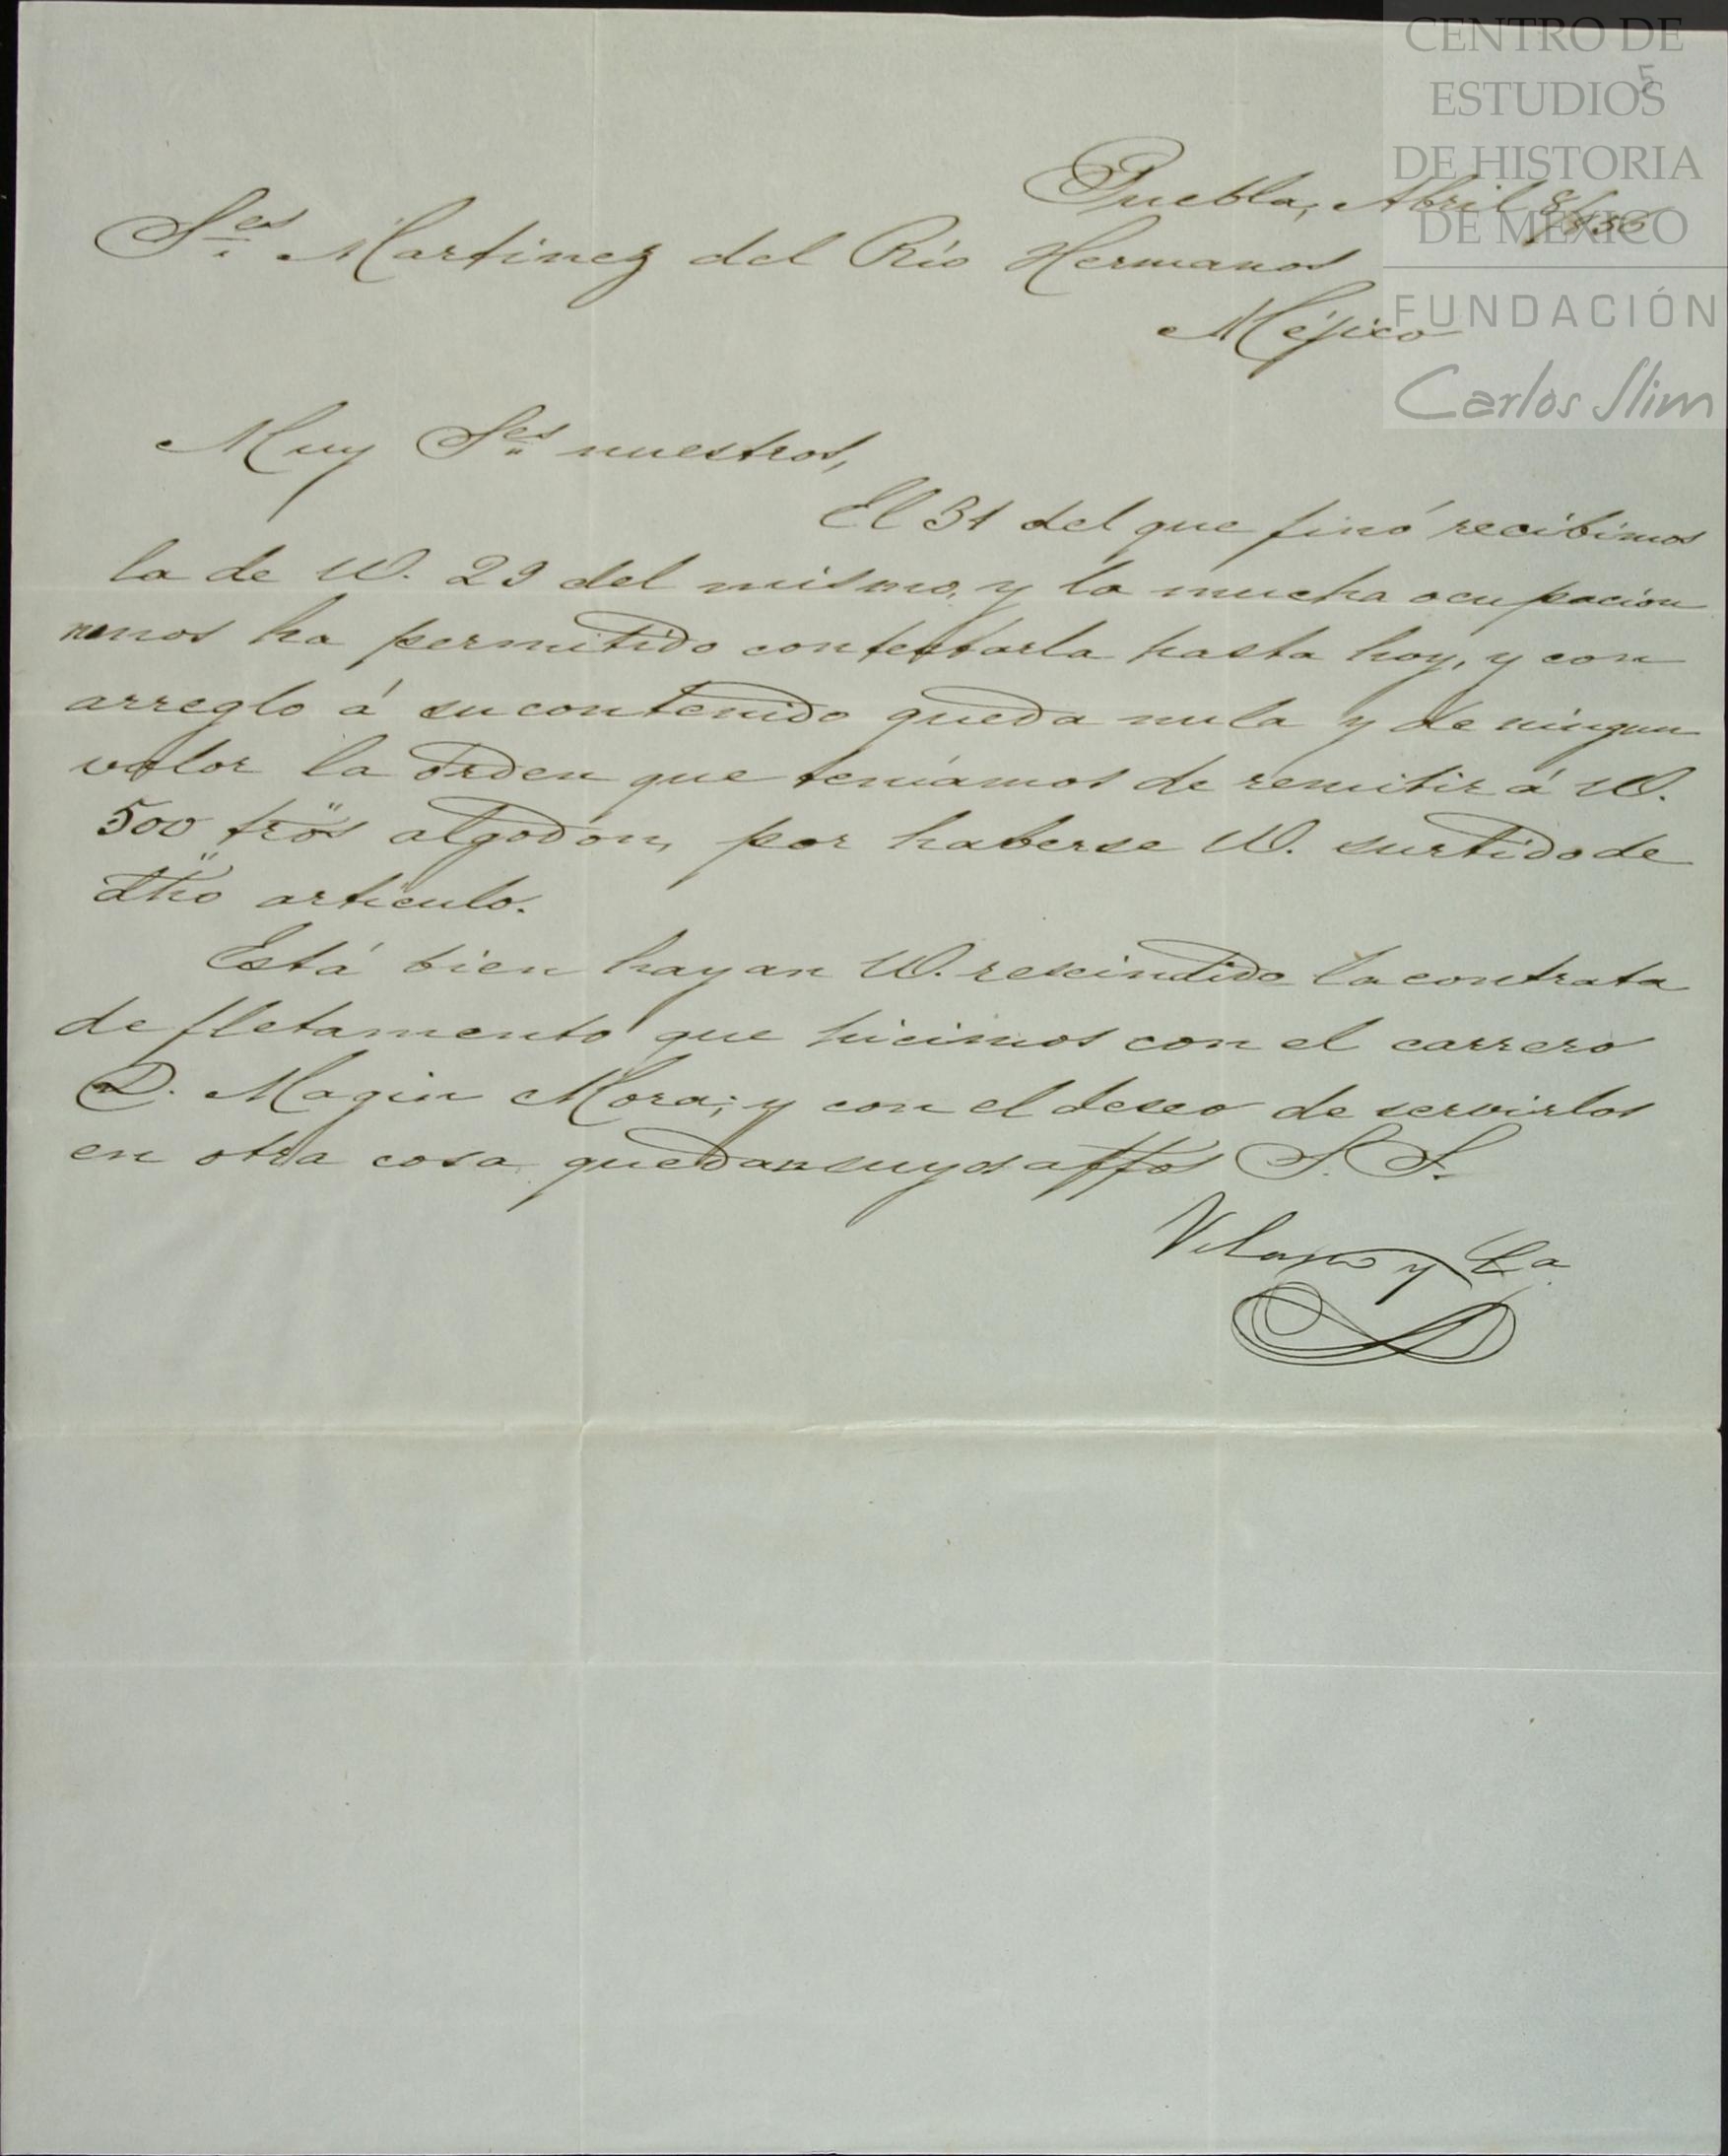 CENTRO DE
ESTUDIOS
DE HISTORIA
DE MÉXICO
FUNDACIÓN
Carlos Slim
5
Puebla, Abril 8/
S.es Martinez del Rio Hermanos
Méjico
Muy S.es nuestros,
El 31 del que finó recibimos
la de W. 29 del mismo, y la mucha ocupacion
nonos ha permitido contestarla hasta hoy, y con
arreglo á su contenido queda nula y de ningun
valor la órden que teníamos de remitir á W.
500 tros algodon, por haberse W. surtido de
dho artículo.
Está bien hayan W. rescindido la contrata
de fletamento que hicimos con el carrero
D. Magin Mora; y con el deseo de servirlos
en otra cosa quedan suyos affos S. S.
y Ca